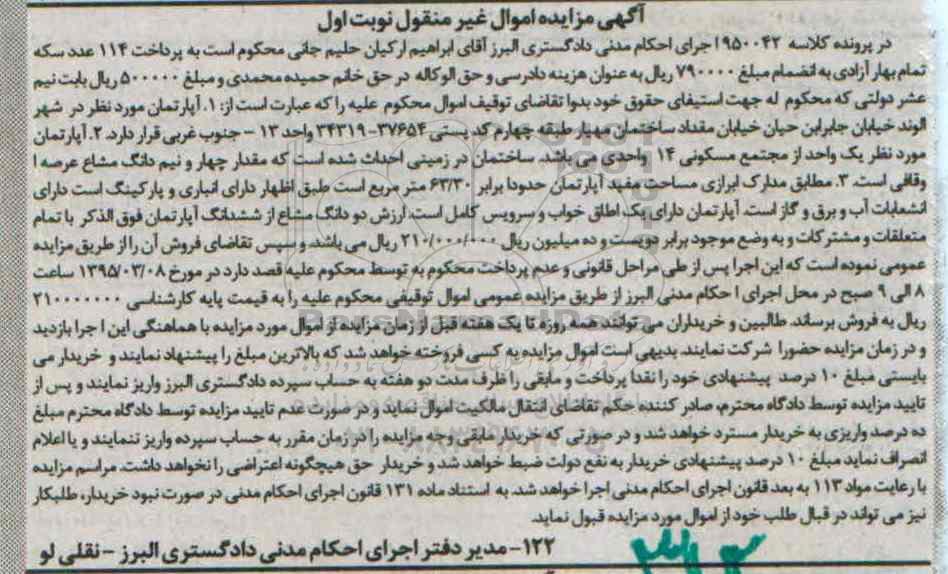 آگهی مزایده اموال غیر منقول نوبت اول
در پرونده کلاسه ۹۵۰۰۴۲ اجرای احکام مدنی دادگستری البرز آقای ابراهیم ارکیان حلیم جانی محکوم است به پرداخت ۱۱۴ عدد سکه
تمام بهار آزادی به انضمام مبلغ ۷۹۰۰۰۰ ریال به عنوان هزینه دادرسی و حق الوکاله در حق خانم حمیده محمدی و مبلغ ۵۰۰۰۰۰ ریال بابت نیم
عشر دولتی که محکوم له جهت استیفای حقوق خود بدوا تقاضای توقیف اموال محکوم علیه را که عبارت است از: ۱. آپارتمان مورد نظر در شهر
الوند خیابان جابرابن حیان خیابان مقداد ساختمان مهیار طبقه چهارم کد پستی ۳۷۶۵۴-۳۴۳۱۹ واحد ۱۳ - جنوب غربی قرار دارد. ۲. آپارتمان
مورد نظر یک واحد از مجتمع مسکونی ۱۴ واحدی می باشد. ساختمان در زمینی احداث شده است که مقدار چهار و نیم دانگ مشاع عرصه ا
وقافی است. ۳. مطابق مدارک ابرازی مساحت مفید آپارتمان حدودا برابر ۶۳/۳۰ متر مربع است طبق اظهار دارای انباری و پارکینگ است دارای
انشعابات آب و برق و گاز است. آپارتمان دارای یک اطاق خواب و سرویس کامل است. ارزش دو دانگ مشاع از ششدانگ آپارتمان فوق الذکر با تمام
متعلقات و مشترکات و به وضع موجود برابر دویست و ده میلیون ریال ۲۱۰/۰۰۰/۰۰۰ ریال می باشد. و سپس تقاضای فروش آن را از طریق مزایده
عمومی نموده است که این اجرا پس از طی مراحل قانونی و عدم پرداخت محکوم به توسط محکوم علیه قصد دارد در مورخ ۱۳۹۵/۰۳/۰۸ ساعت
۸ الی ۹ صبح در محل اجرای احکام مدنی البرز از طریق مزایده عمومی اموال توقیفی محکوم علیه را به قیمت پایه کارشناسی ۲۱۰۰۰۰۰۰۰
ریال به فروش برساند. طالبین و خریداران می توانند همه روزه تا یک هفته قبل از زمان مزایده از اموال مورد مزایده با هماهنگی این اجرا بازدید
و در زمان مزایده حضورا شرکت نمایند. بدیهی است اموال مزایده به کسی فروخته خواهد شد که بالاترین مبلغ را پیشنهاد نمایند و خریدار می
بایستی مبلغ ۱۰ درصد پیشنهادی خود را نقدا پرداخت و مابقی را ظرف مدت دو هفته به حساب سپرده دادگستری البرز واریز نمایند و پس از
تایید مزایده توسط دادگاه محترم، صادر کننده حکم تقاضای انتقال مالکیت اموال نماید و در صورت عدم تایید مزایده توسط دادگاه محترم مبلغ
ده درصد واریزی به خریدار مسترد خواهد شد و در صورتی که خریدار مابقی وجه مزایده را در زمان مقرر به حساب سپرده واریز ننمایند و یا اعلام
انصراف نماید مبلغ ۱۰ درصد پیشنهادی خریدار به نفع دولت ضبط خواهد شد و خریدار حق هیچگونه اعتراضی را نخواهد داشت. مراسم مزایده
با رعایت مواد ۱۱۳ به بعد قانون اجرای احکام مدنی اجرا خواهد شد. به استناد ماده ۱۳۱ قانون اجرای احکام مدنی در صورت نبود خریدار، طلبکار
نیز می تواند در قبال طلب خود از اموال مورد مزایده قبول نماید.
۱۲۲- مدیر دفتر اجرای احکام مدنی دادگستری البرز - نقلی لو
ParsNamadData